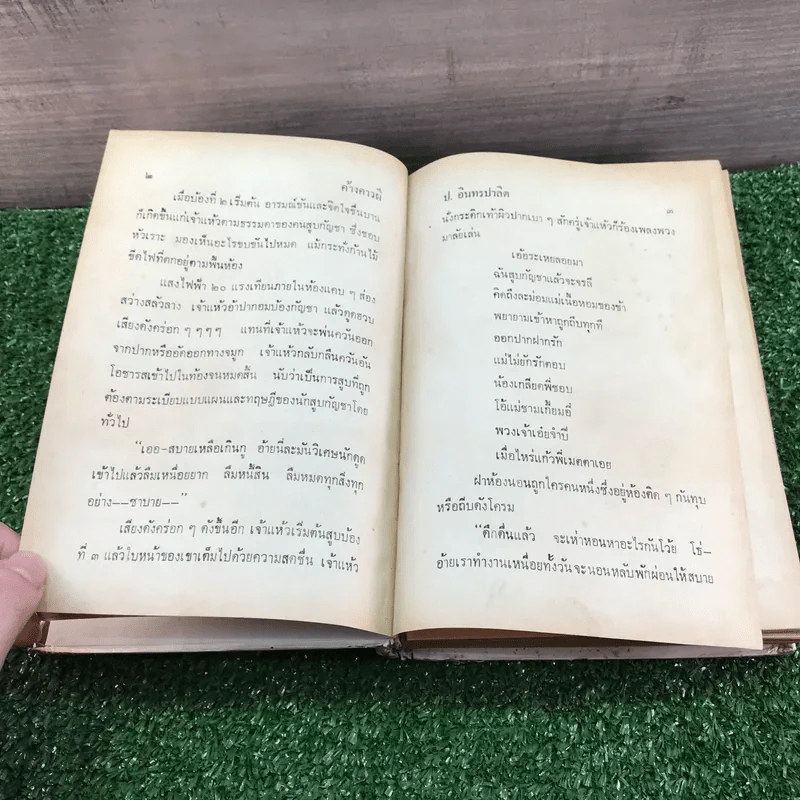 ๒ ค้างคาวผี
เมื่อบ้องที่ ๒ เริ่มต้น อารมณ์ขันและจิตใจชื่นบาน
ก็เกิดขึ้นแก่เจ้าแห้วตามธรรมดาของคนสูบกัญชา ซึ่งชอบ
หัวเราะ มองเห็นอะไรขบขันไปหมด แม้กระทั่งก้านไม้
ขีดไฟที่ตกอยู่ตามพื้นห้อง
แสงไฟฟ้า ๒๐ แรงเทียนภายในห้องแคบ ๆ ส่อง
สว่างสลัวลาง เจ้าแห้วอ้าปากอมบ้องกัญชา แล้วดูดฮวบ
เสียงดังคร่อก ๆ ๆ ๆ ๆ แทนที่เจ้าแห้วจะพ่นควันออก
จากปากหรืออัดออกทางจมูก เจ้าแห้วกลับกลืนควันอัน
โอชารสเข้าไปในท้องจนหมดสิ้น นับว่าเป็นการสูบที่ถูก
ต้องตามระเบียบแบบแผนและทฤษฎีของนักสูบกัญชาโดย
ทั่วไป
"เออ-สบายเหลือเกินกู อ้ายนี่ละมันวิเศษนักดูด
เข้าไปแล้วลืมเหนื่อยยาก ลืมหนี้สิน ลืมหมดทุกสิ่งทุก
อย่าง——ซาบาย—"
เสียงดังคร่อก ๆ ดังขึ้นอีก เจ้าแห้วเริ่มต้นสูบบ้อง
ที่ ๓ แล้วใบหน้าของเขาเต็มไปด้วยความสดชื่น เจ้าแห้ว
ป. อินทรปาลิต ๓
นั่งกระดิกเท้าผิวปากเบา ๆ สักครู่เจ้าแห้วก็ร้องเพลงพวง
มาลัยเล่น
เอ้อระเหยลอยมา
ฉันสูบกัญชาแล้วจะจรลี
คิดถึงละม่อมแม่เนื้อหอมของข้า
พยายามเข้าหาถูกถีบทุกที
ออกปากฝากรัก
แม่ไม่ยักรักตอบ
น้องเกลียดพี่ชอบ
โอ้แม่ชามเกี้ยมอี๋
พวงเจ้าเอ๋ยจำปี
เมื่อไหร่แก้วพี่เมตตาเอย
ฝาห้องนอนถูกใครคนหนึ่งซึ่งอยู่ห้องติด ๆ กันทุบ
หรือถีบดังโครม
"ดึกดื่นแล้ว จะเห่าหอนหาอะไรกันโว้ย โธ่-
อ้ายเราทำงานเหนื่อยทั้งวัน จะนอนหลับพักผ่อนให้สบาย